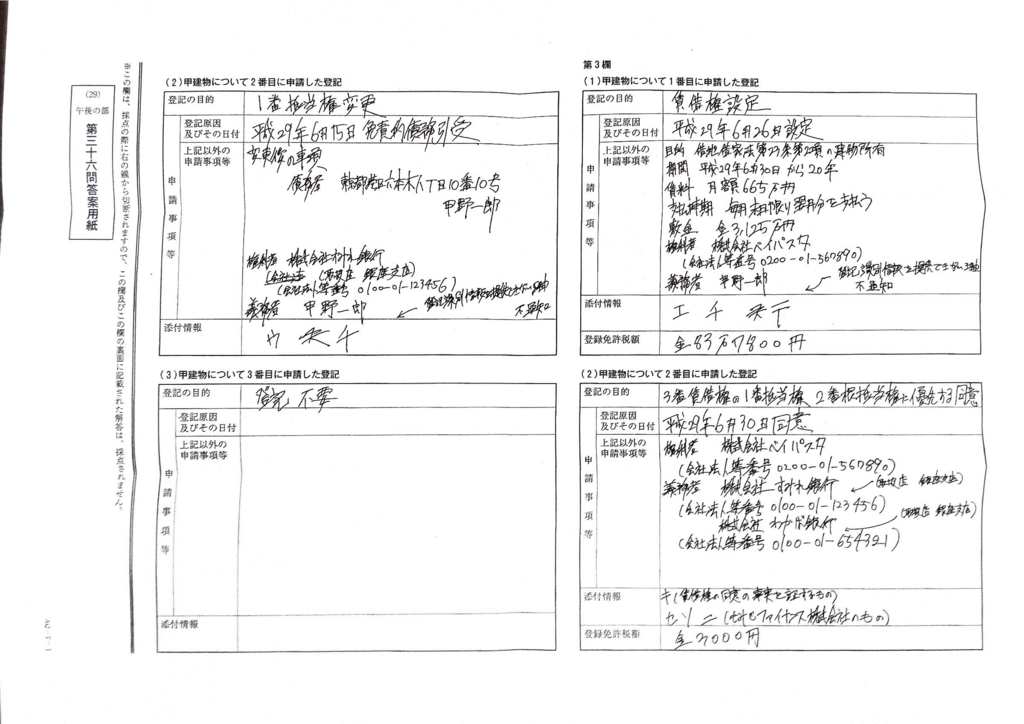 第3欄
(1)甲建物について1番目に申請した登記
登記の目的
賃借権設定
登記原因
及びその日付
平成29年6月26日設定
上記以外の
申請事項等
申請事項等
目的 借地借家法第23条第2項の建物所有
期間 平成29年6月30日から20年
賃料 月額665万円
支払時期 毎月末日限り翌月分を支払う
敷金 金3,125万円
権利者 株式会社ベイパスタ
(会社法人等番号0200-01-567890)
義務者 甲野一郎
登記識別情報を提供できない理由
不通知
添付情報
エ チ
登録免許税額
金83万7800円
(2)甲建物について2番目に申請した登記
登記の目的
3番賃借権の1番抵当権、2番根抵当権に優先する同意
登記原因
及びその日付
平成29年6月30日同意
上記以外の
申請事項等
申請事項等
権利者 株式会社ベイパスタ
(会社法人等番号0200-01-567890)
義務者 株式会社すみれ銀行
(取扱店 銀座支店)
(会社法人等番号0100-01-123456)
株式会社わかば銀行
(取扱店 銀座支店)
(会社法人等番号0100-01-654321)
添付情報
キ(賃借権の同意の事実を証するもの)
セ ソ ニ
登録免許税額
金3000円
(2)甲建物について2番目に申請した登記
登記の目的
1番抵当権変更
登記原因
及びその日付
平成29年6月15日免責的債務引受
上記以外の
申請事項等
申請事項等
変更後の事項
債務者 東京都港区六本木八丁目10番10号
甲野一郎
権利者 株式会社すみれ銀行
(取扱店 銀座支店)
(会社法人等番号0100-01-123456)
義務者 甲野一郎
登記識別情報を提供できない理由
不通知
添付情報
(3)甲建物について3番目に申請した登記
登記の目的
登記不要
登記原因
及びその日付
上記以外の
申請事項等
申請事項等
添付情報
※この欄は、採点の際に右の線から切断されますので、この欄及びこの欄の裏面に記載された解答は、採点されません。
(29)
午後の部
第三十六問答案用紙